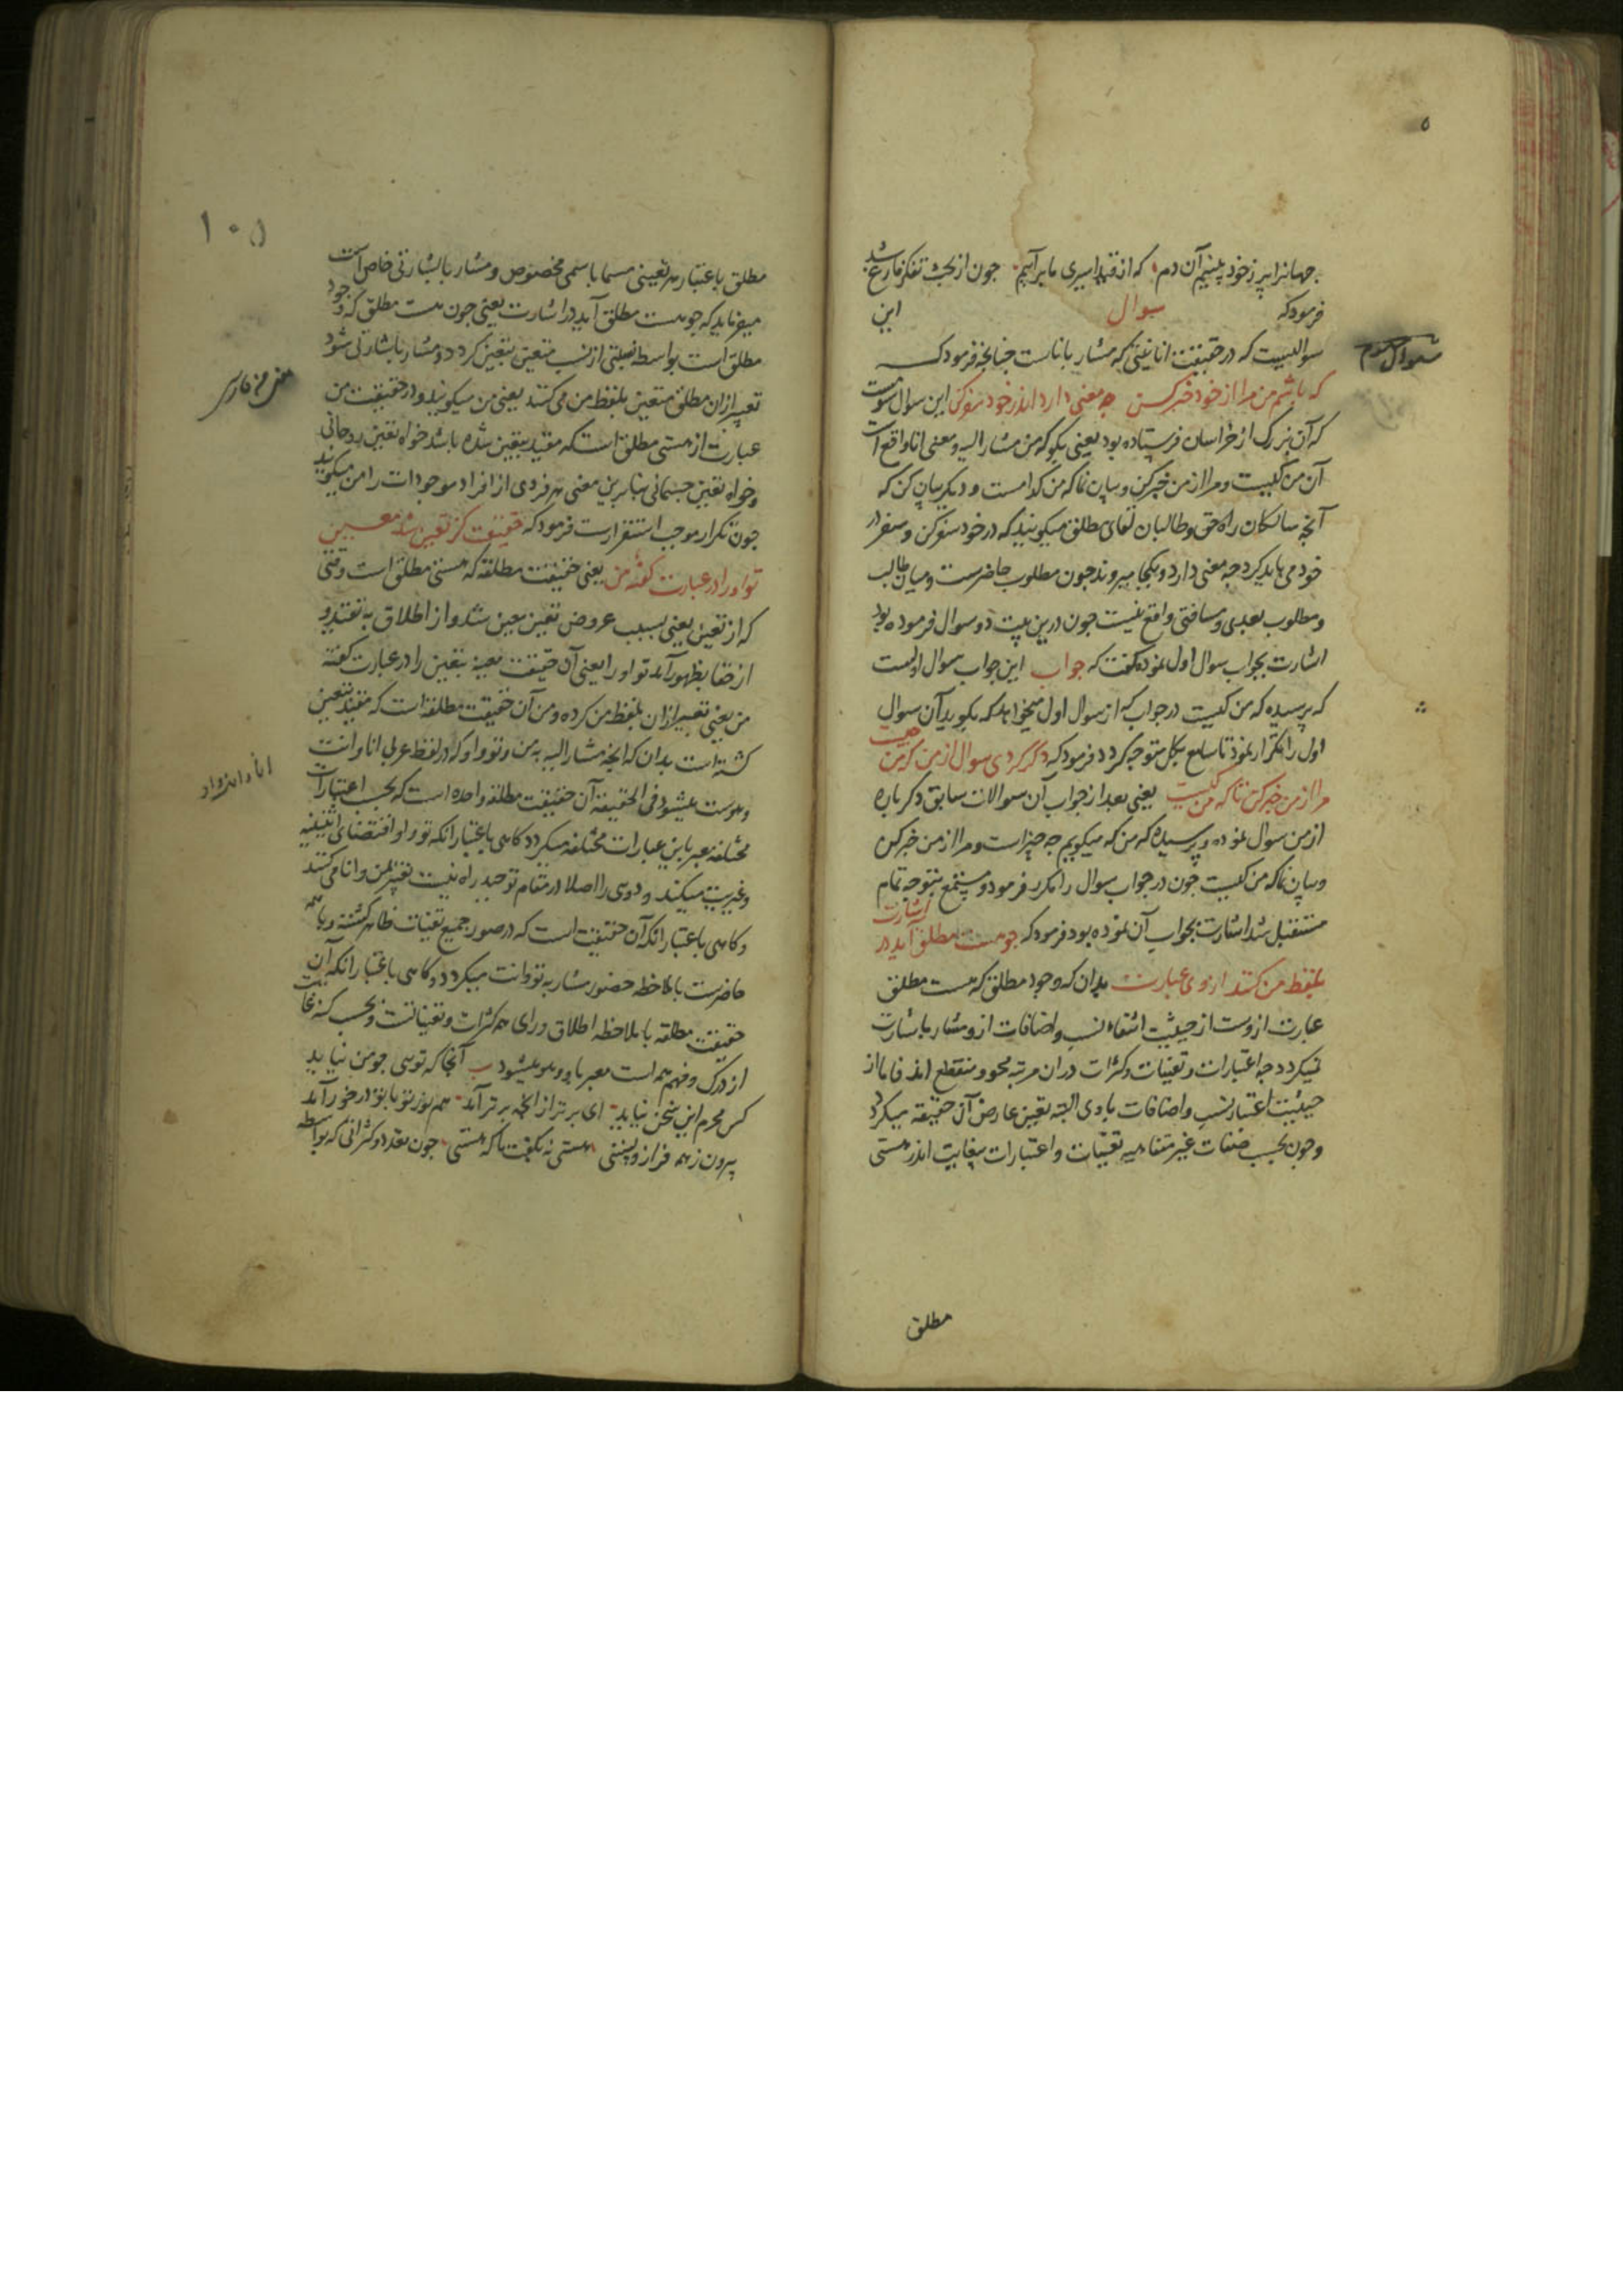 جهانرا پر ز خود بینیم آن دم که از قید اسیری ما برآئیم چون از بحث تفکر فارغ شد
فرمود که سوال این
سوال سیوم
سوالیست که در حقیقت انانیتی که مشار بانا است چنانچه فرمود که
که باشم من مرا از خود خبر کن چه معنی دارد اندر خود سفر کن این سوال سومست
که آن بزرگ از خراسان فرستاده بود یعنی بگو که من مشار الیه و معنی انا واقع است
آن من کیست و مرا از من خبر کن و بیان نما که من کدامست و دیگر بیان کن که
آنچه سالکان راه حق و طالبان لقای مطلق میگویند که در خود سفر کن و سفر در
خود می باید کرد چه معنی دارد و بکجا میروند چون مطلوب حاضرست و میان طالب
و مطلوب بعدی و مسافتی واقع نیست چون درین بیت دو سوال فرموده بود
اشارت بجواب سوال اول نموده گفت که جواب این جواب سوال اولست
که پرسیده که من کیست در جواب که از سوال اول میخواهد که بگوید آن سوال
اول را تکرار نمود تا سامع بکل متوجه گردد فرمود که دگر کردی سوال از من که من چیست
مرا از من خبر کن تا که من کیست یعنی بعد از جواب آن سوالات سابق دگرباره
از من سوال نموده و پرسیده که من که میگویم چه چیزاست و مرا از من خبر کن
و بیان نما که من کیست چون در جواب سوال را مکرر فرمود و مستمع بتوجه تمام
مستقبل شد اشارت بجواب آن نموده بود فرمود که چو هست مطلق آید در اشارت
بلفظ من کنند از وی عبارت بدان که وجود مطلق که هست مطلق
عبارت ازوست از حیثیت انتفاء نسب و اضافات ازو مشار باشارت
نمیگردد چه اعتبارات و تعینات و کثرات دران مرتبه محو و منقطع اند فاما از
حیثیت اعتبار نسب و اضافات باوی البته تعین عارض آن حقیقة میگردد
و چون بحسب صفات غیر متناهیه تعینات و اعتبارات بیغایت اندر هستی
مطلق
۱۰۵
مطلق باعتبار هر تعینی مسما باسمی مخصوص و مشار باشارتی خاص است
میفرماید که چو هست مطلق آید در اشارت یعنی چون هست مطلق که وجود
مطلق است بواسطه نسبتی از نسب متعین بتعین گردد و مشار باشارتی شود
تعبیر ازان مطلق متعین بلفظ من می کنند یعنی من میگویند و در حقیقت من
عبارت از هستی مطلق است که مقید بتعین شده باشد خواه تعین روحانی
و خواه تعین جسمانی بنابرین معنی هر فردی از افراد موجودات را من میگویند
چون تکرار موجب استقرارست فرمود که حقیقت کز تعین شد معین
تو او را در عبارت گفته من یعنی حقیقت مطلقه که هستی مطلق است وقتی
که از تعین یعنی بسبب عروض تعین معین شد و از اطلاق به تقید و
از خفا بظهور آمد تو او را یعنی آن حقیقت معینه بتعین را در عبارت گفته
من یعنی تعبیر ازان بلفظ من کرده و من آن حقیقت مطلقه است که مقید بتعین
گشته است بدان که آنچه مشار الیه به من و تو و او که در لفظ عربی انا و انت
و هوست میشود فی الحقیقة آن حقیقت مطلقه واحده است که بحسب اعتبارات
مختلفه معبر باین عبارات مختلفه میگردد گاهی باعتبار انکه تو و او اقتضای اثنینیه
و غیریت میکند و دوی را اصلا در مقام توحید راه نیست تعبیر بمن و انا می کنند
و گاهی باعتبار انکه آن حقیقت است که در صور جمیع تعینات ظاهر گشته و با همه
حاضرست با ملاحظه حضور مشار به تو و انت میگردد و گاهی باعتبار انکه آن
حقیقت مطلقه با ملاحظه اطلاق ورای همه کثرات و تعیناتست و بحسب کنه غایت
از درک و فهم همه است معبر باو و هو میشود ب آنجا که توئی چو من نیاید
کس محرم این سخن نیاید ای برتر از آنچه برتر آمد هم نور تو با تو در خور آمد
بیرون ز همه فراز و پستی هستی نه بگفت ما که هستی چون تعدد و کثراتی که بواسطه